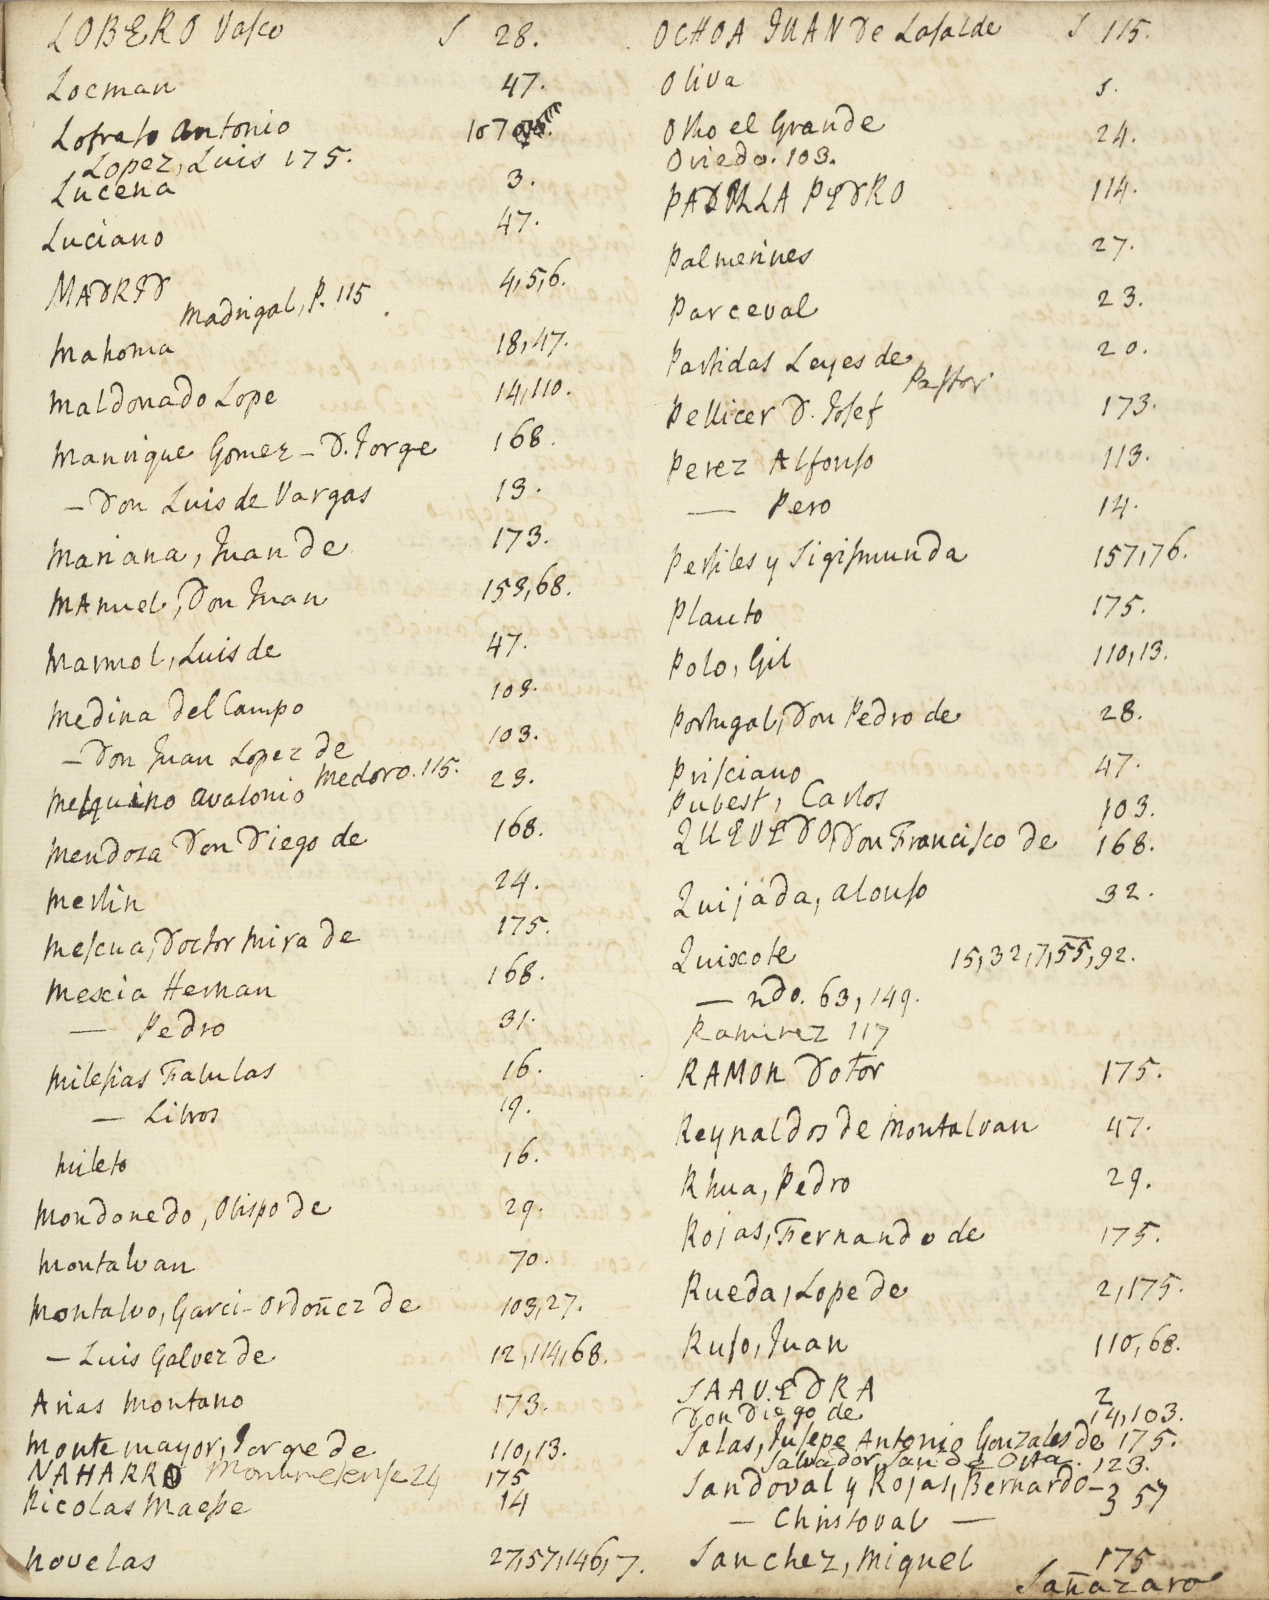 LOBERO Vasco § 28.
Locman 47.
Lofraso Antonio 107
Lopez, Luis 175.
Lucena 3.
Luciano 47.
MADRID 4,5,6.
Madrigal, P. 115
Mahoma 18,47.
Maldonado Lope 14,110.
Manrique Gomez - D. Jorge 168.
- Don Luis de Vargas 13.
Mariana, Juan de 173.
MAnuel, Don Juan 153,68.
Marmol, Luis de 47.
Medina del Campo 103.
- Don Juan Lopez de 103.
Medoro. 115.
Melquino Avalonio 23.
Mendoza Don Diego de 168.
Merlin 24.
Mescua, Doctor Mira de 175.
Mexia Hernan 168.
— Pedro 31.
Milesias Fabulas 16.
— Libros 19.
Mileto 16.
Mondonedo, Obispo de 29.
Montalvan 70.
Montalvo, Garci-Ordoñez de 103,27.
- Luis Galvez de 12,114,68.
Arias Montano 173.
Montemayor, Jorge de 110,13.
NAHARRO 175
Monumetense 24
Nicolas Maese 14
Novelas 27,57,146,7.
OCHOA JUAN de Lasalde § 115.
Oliva 5.
Otho el Grande 24.
Oviedo. 103.
PADILLA PEDRO 114.
Palmerines 27.
Parceval 23.
Partidas Leyes de 20.
Pastor
Pellicer D. Josef 173.
Perez Alfonso 113.
— Pero 14.
Persiles y Sigismunda 157,76.
Plauto 175.
Polo, Gil 110,13.
Portugal, Don Pedro de 28.
Prisciano 47.
Pubest, Carlos 103.
QUEVEDO, Don Francisco de 168.
Quijada, Alonso 32.
Quixote 15,32,7,55,92.
— ndo. 63, 149.
Ramirez 117
RAMON Dotor 175.
Reynaldos de Montalvan 47.
Rhua, Pedro 29.
Rojas, Fernando de 175.
Rueda, Lope de 2,175.
Rufo, Juan 110,68.
SAAVEDRA 2
Don Diego de 14,103.
Salas, Jusepe Antonio Gonzales de 175.
Salvador, San de Orta. 123.
Sandoval y Rojas, Bernardo - 3 57
— Christoval —
Sanchez, Miguel 175
Sañazaro